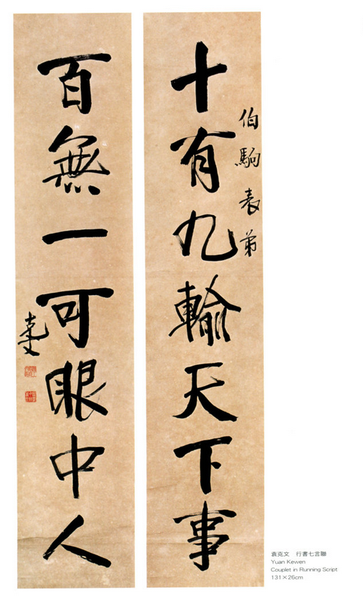 伯駒表弟
十有九輸天下事
百無一可眼中人
克文
袁克文　行書七言聯
Yuan Kewen
Couplet in Running Script
131×26cm